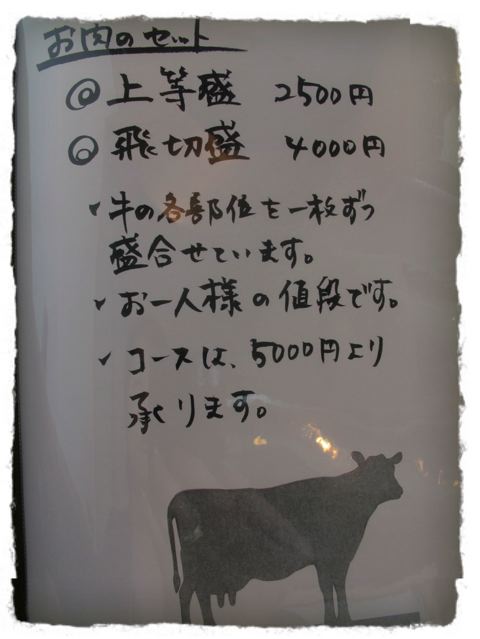 お肉のセット
◎上等盛 2500円
◎飛切盛 4000円
・牛の各部位を一枚ずつ
盛合せています。
・お一人様の値段です。
・コースは、5000円より
承ります。